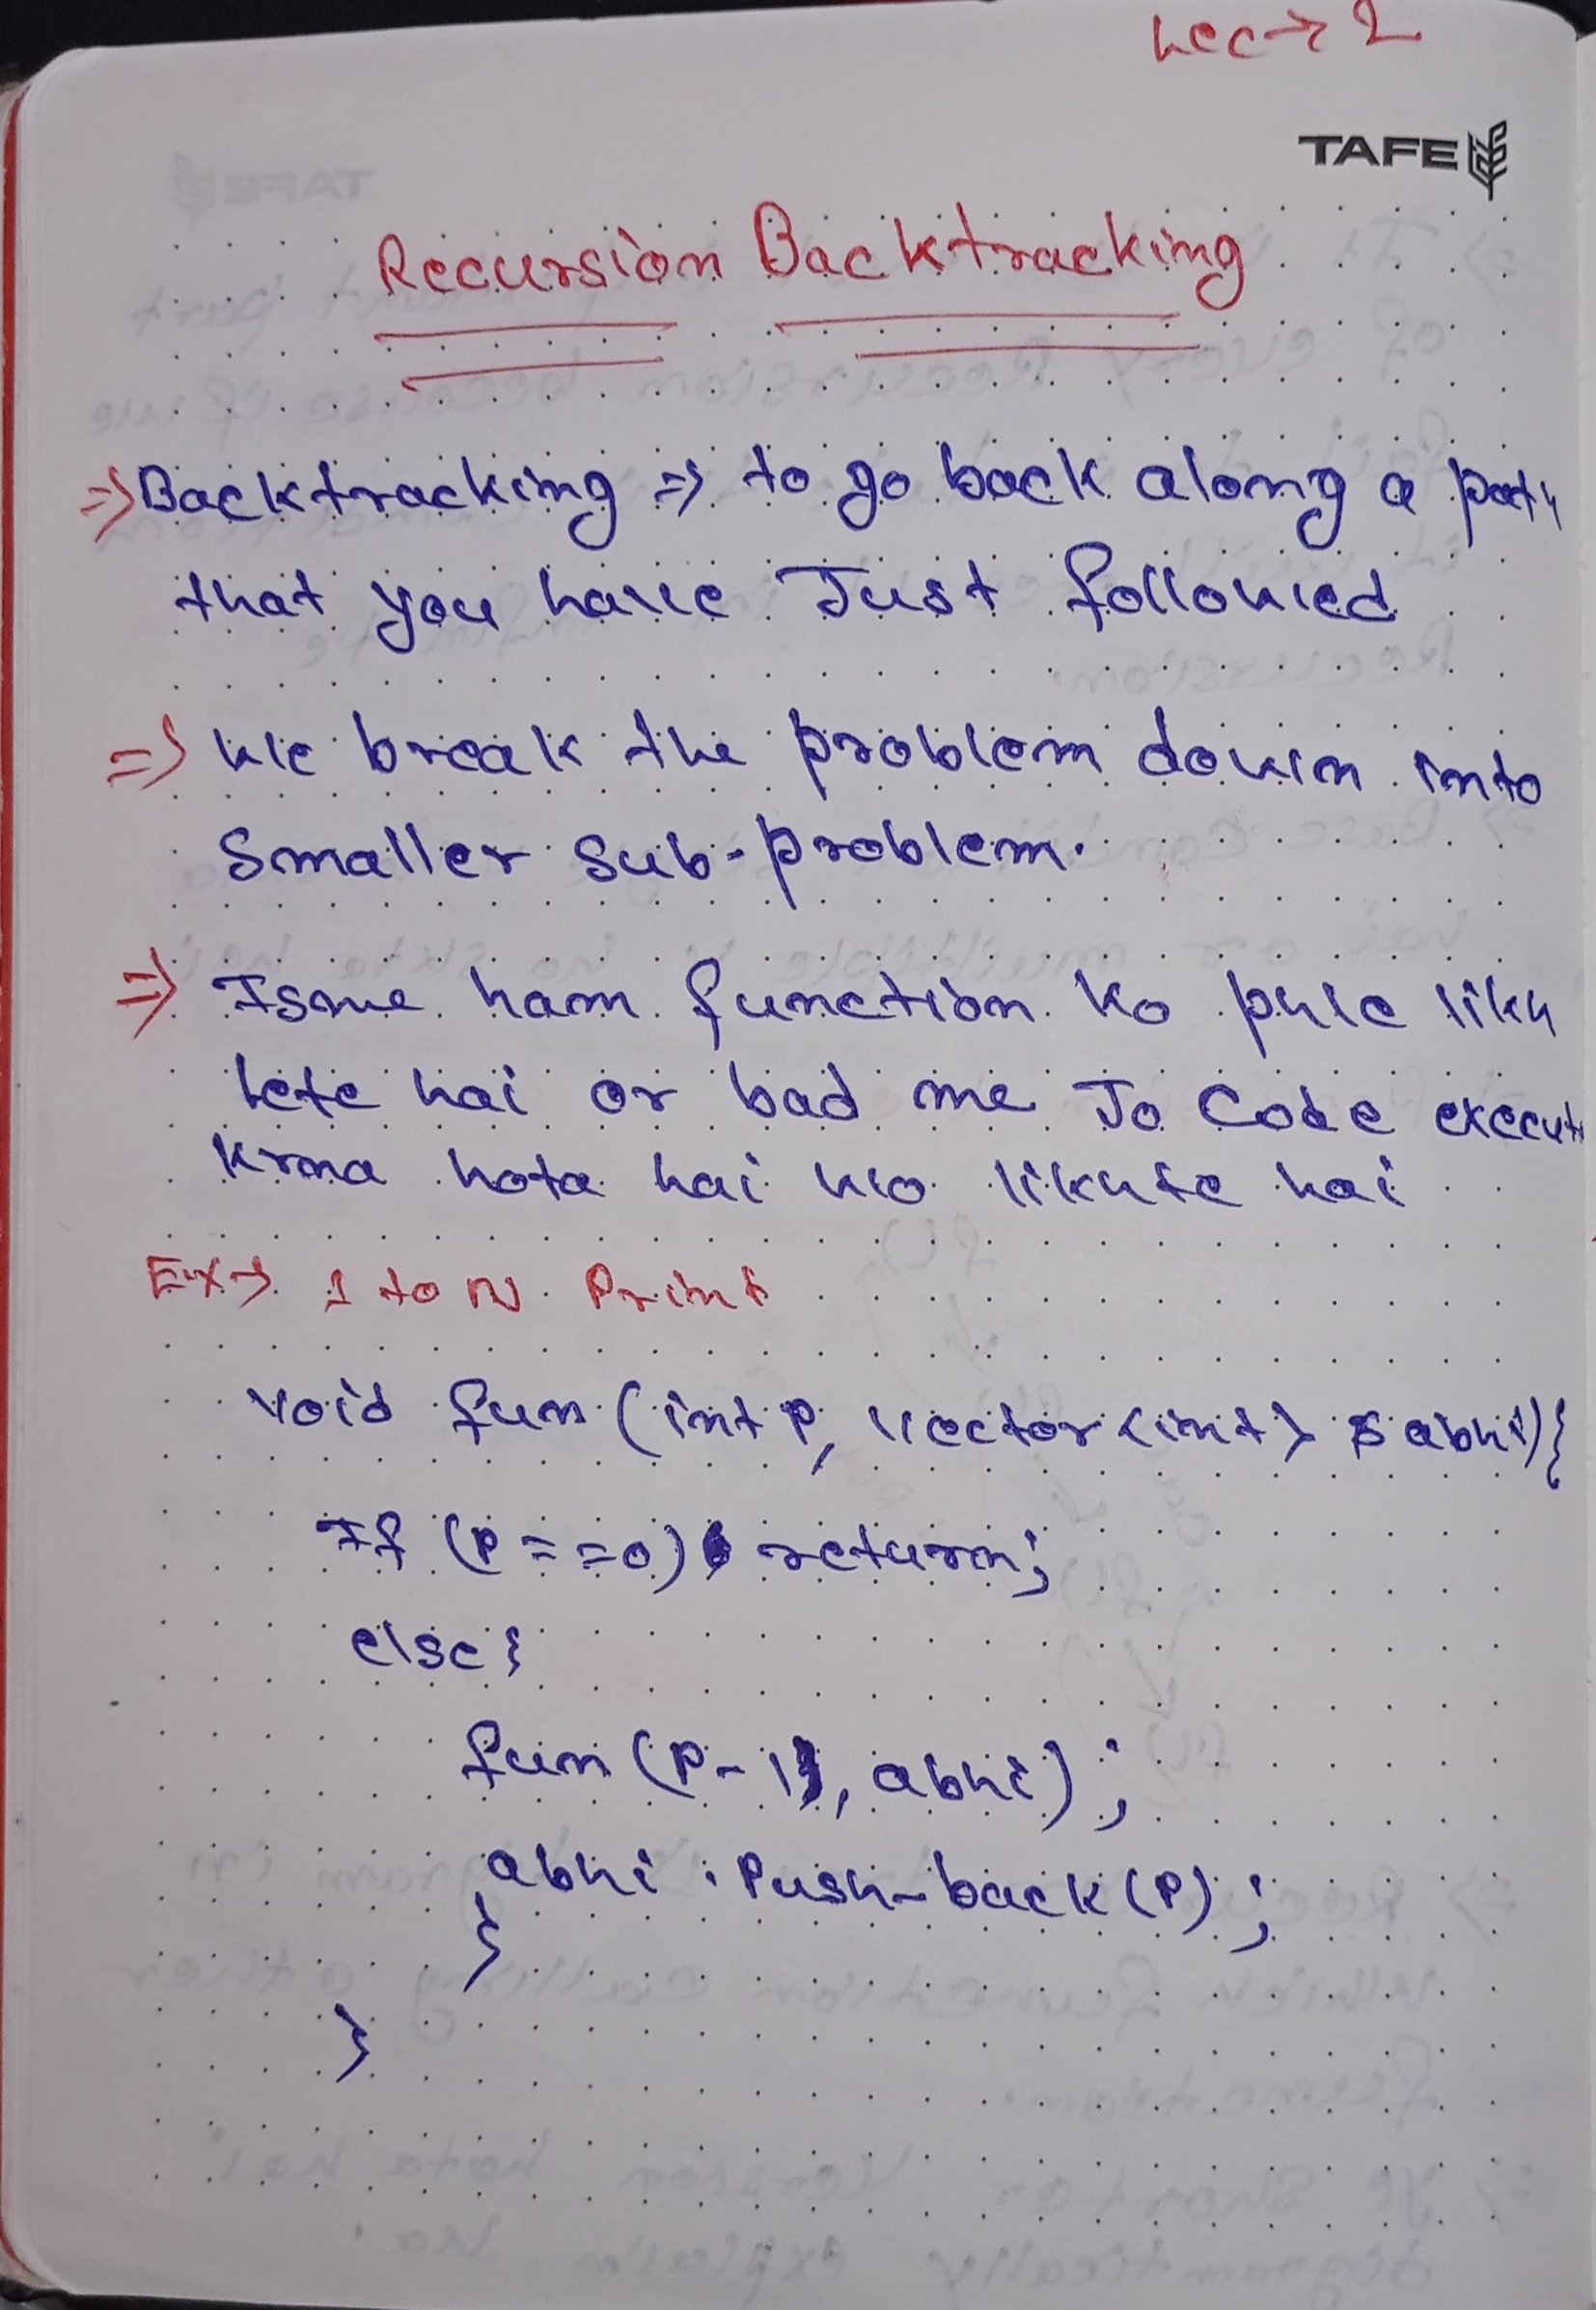 Lec → 2
TAFE
Recursion Backtracking
⇒ Backtracking ⇒ to go back along a path
that you have Just followed
⇒ We break the problem down into
smaller sub-problem.
⇒ Isme ham function ko phle likh
lete hai or bad me Jo Code execut
krna hota hai wo likhte hai
Ex → 1 to N Print
void fun (int P, vector<int> & abhi){
If (P == 0) return;
else{
fun (P-1, abhi) ;
abhi . Push_back (P) ;
}
}